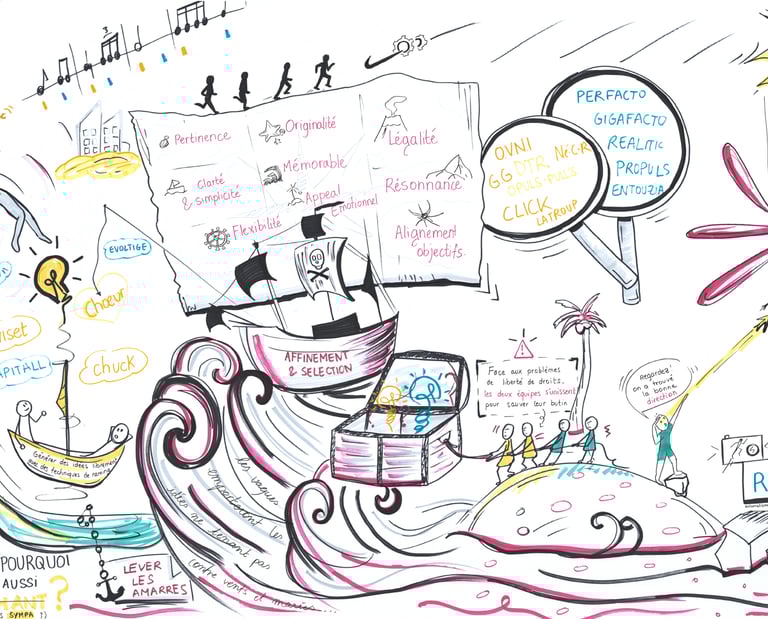 3
Pertinence
Originalité
Légalité
Clarté
& simplicité
Mémorable
Appeal
Emotionnel
Résonnance
Flexibilité
Alignement
objectifs.
OVNI
GG DTR NéCR
OPULS-PULS
CLICK
LATROUP
PERFACTO
GIGAFACTO
REALITIC
PROPULS
ENTOUZIA
EVOLTIGE
Chœur
chuck
AFFINEMENT
& SELECTION
Face aux problèmes
de liberté de droits,
les deux équipes s'unissent
pour sauver leur butin
Regardez!
on a trouvé
la bonne
direction
Générer des idées librement
avec des techniques de naming
les vagues
emporteront les
idées ne tenant pas
contre vents et marées...
POURQUOI
AUSSI
?
SYMPA ?)
LEVER
LES
AMARRES
R